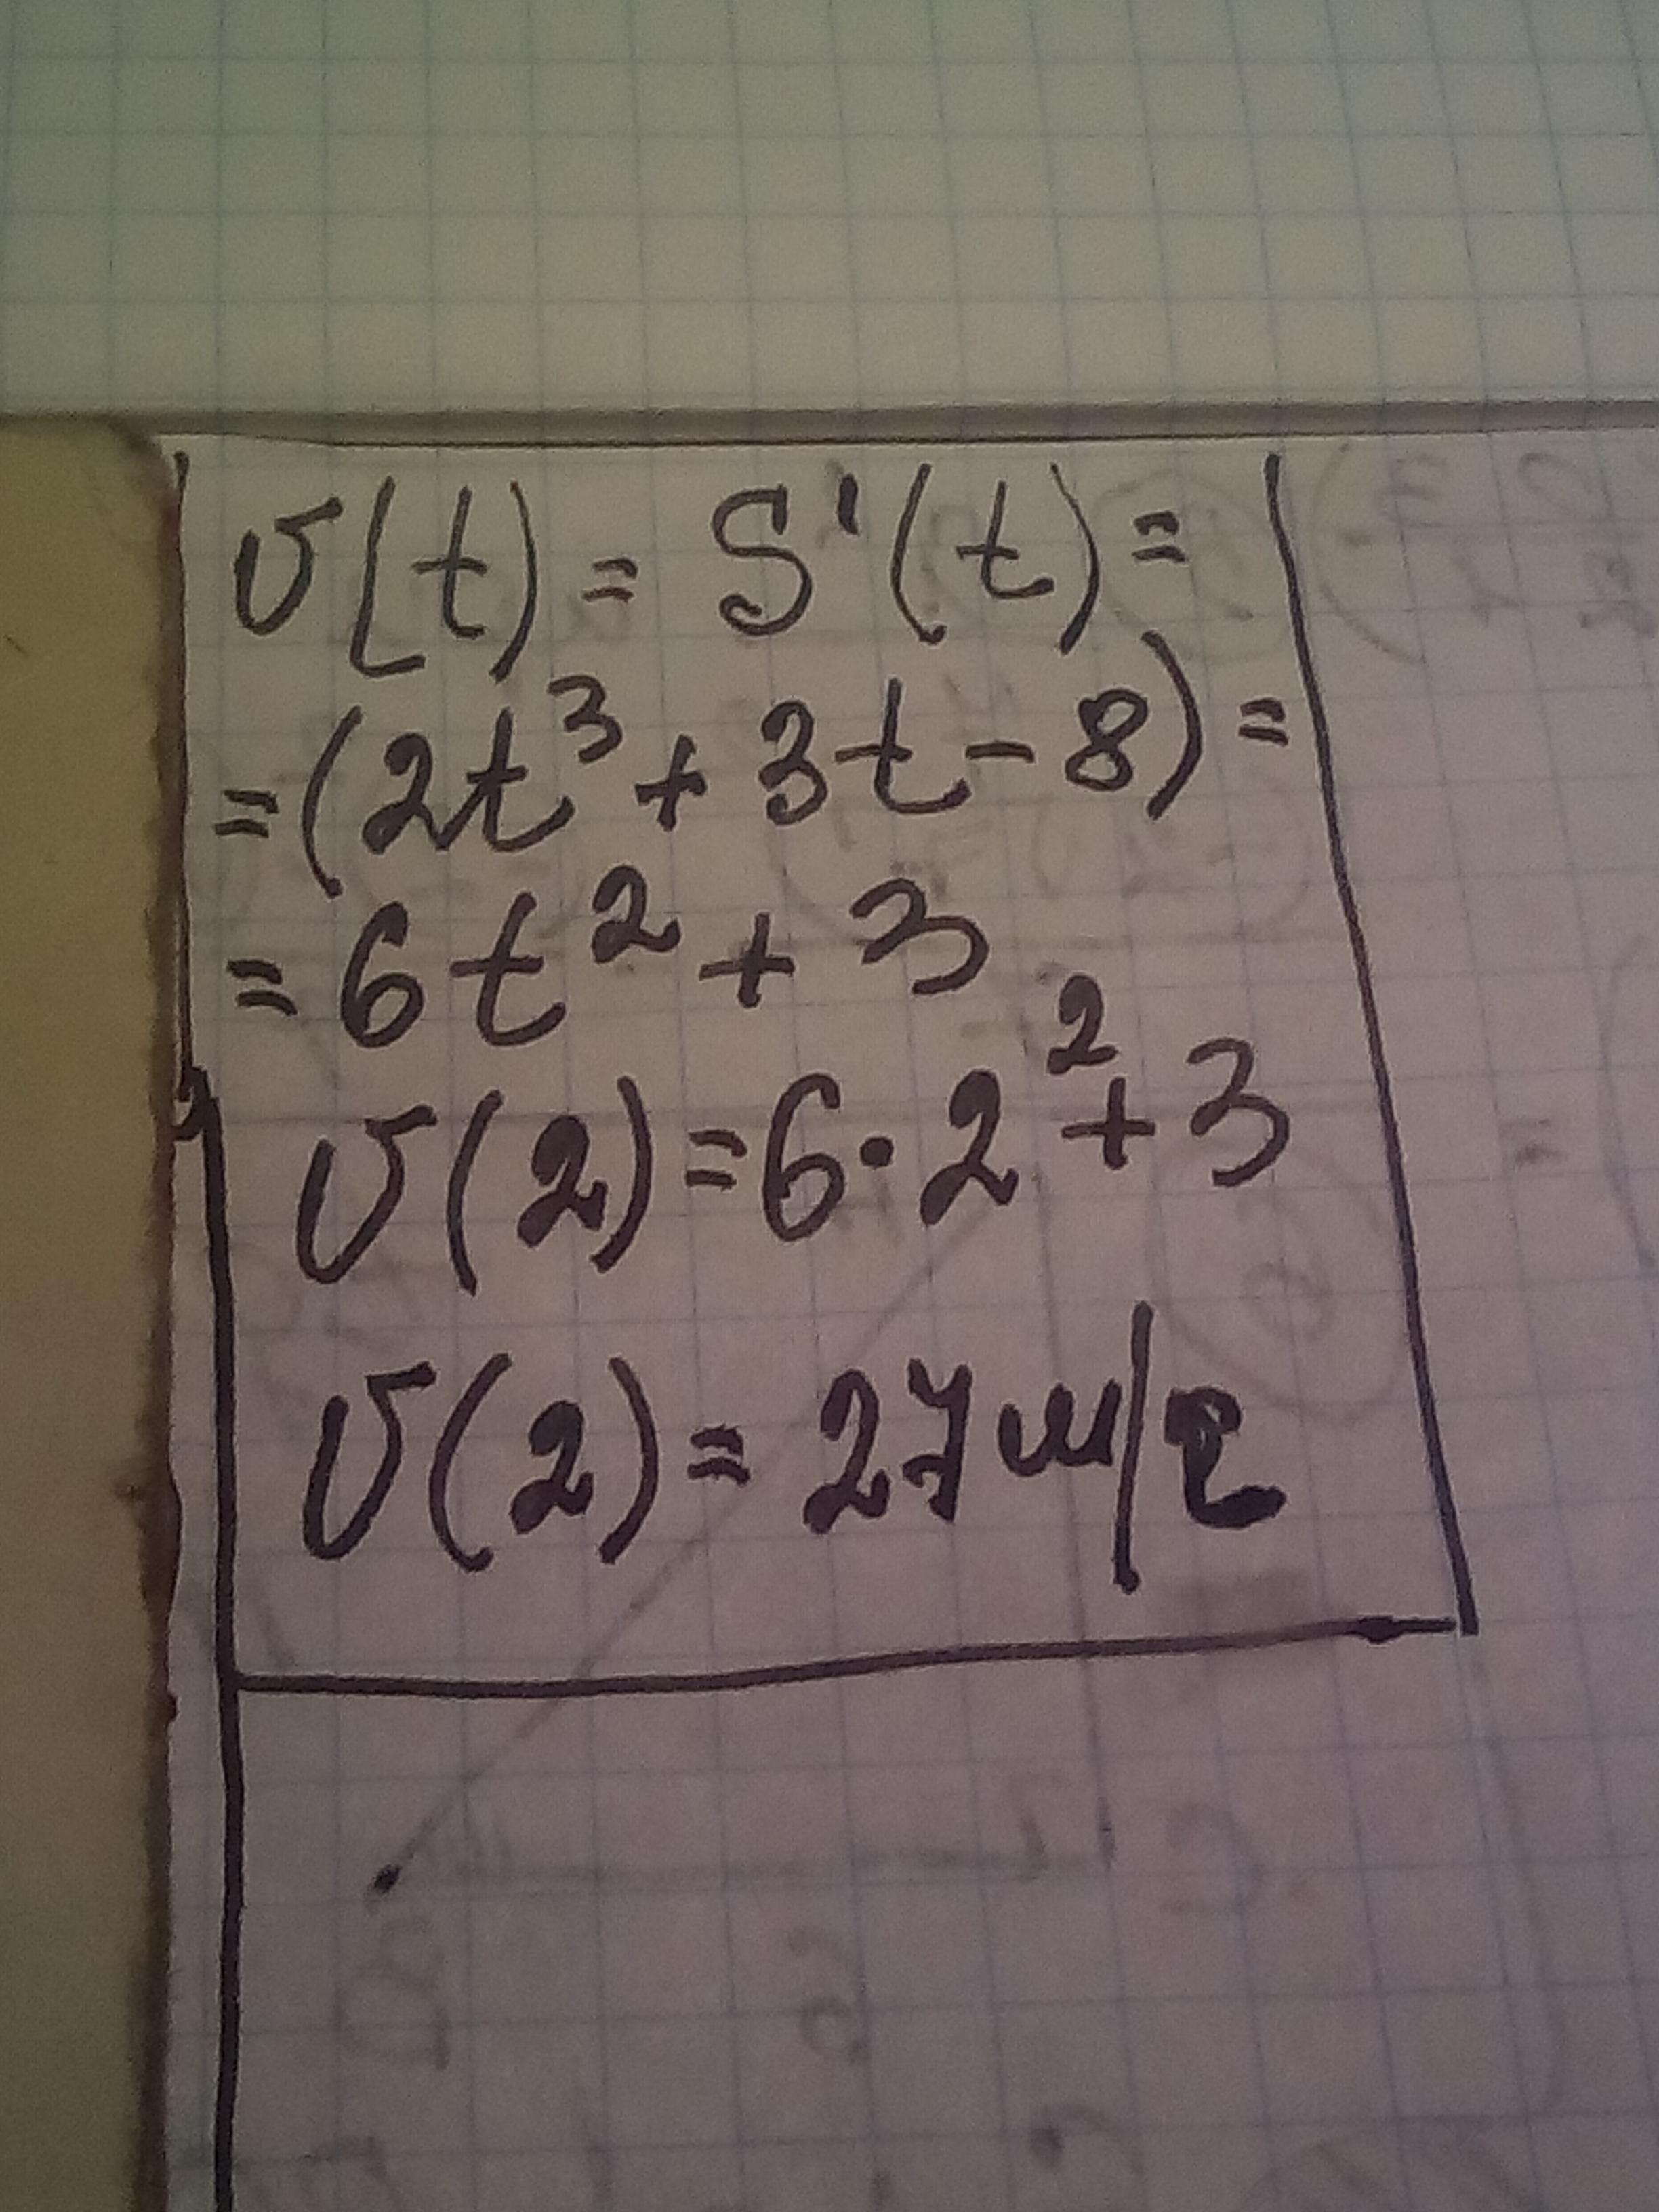 υ(t) = S'(t) =
= (2t³ + 3t - 8) =
= 6t² + 3
υ(2) = 6 · 2² + 3
υ(2) = 27 м/